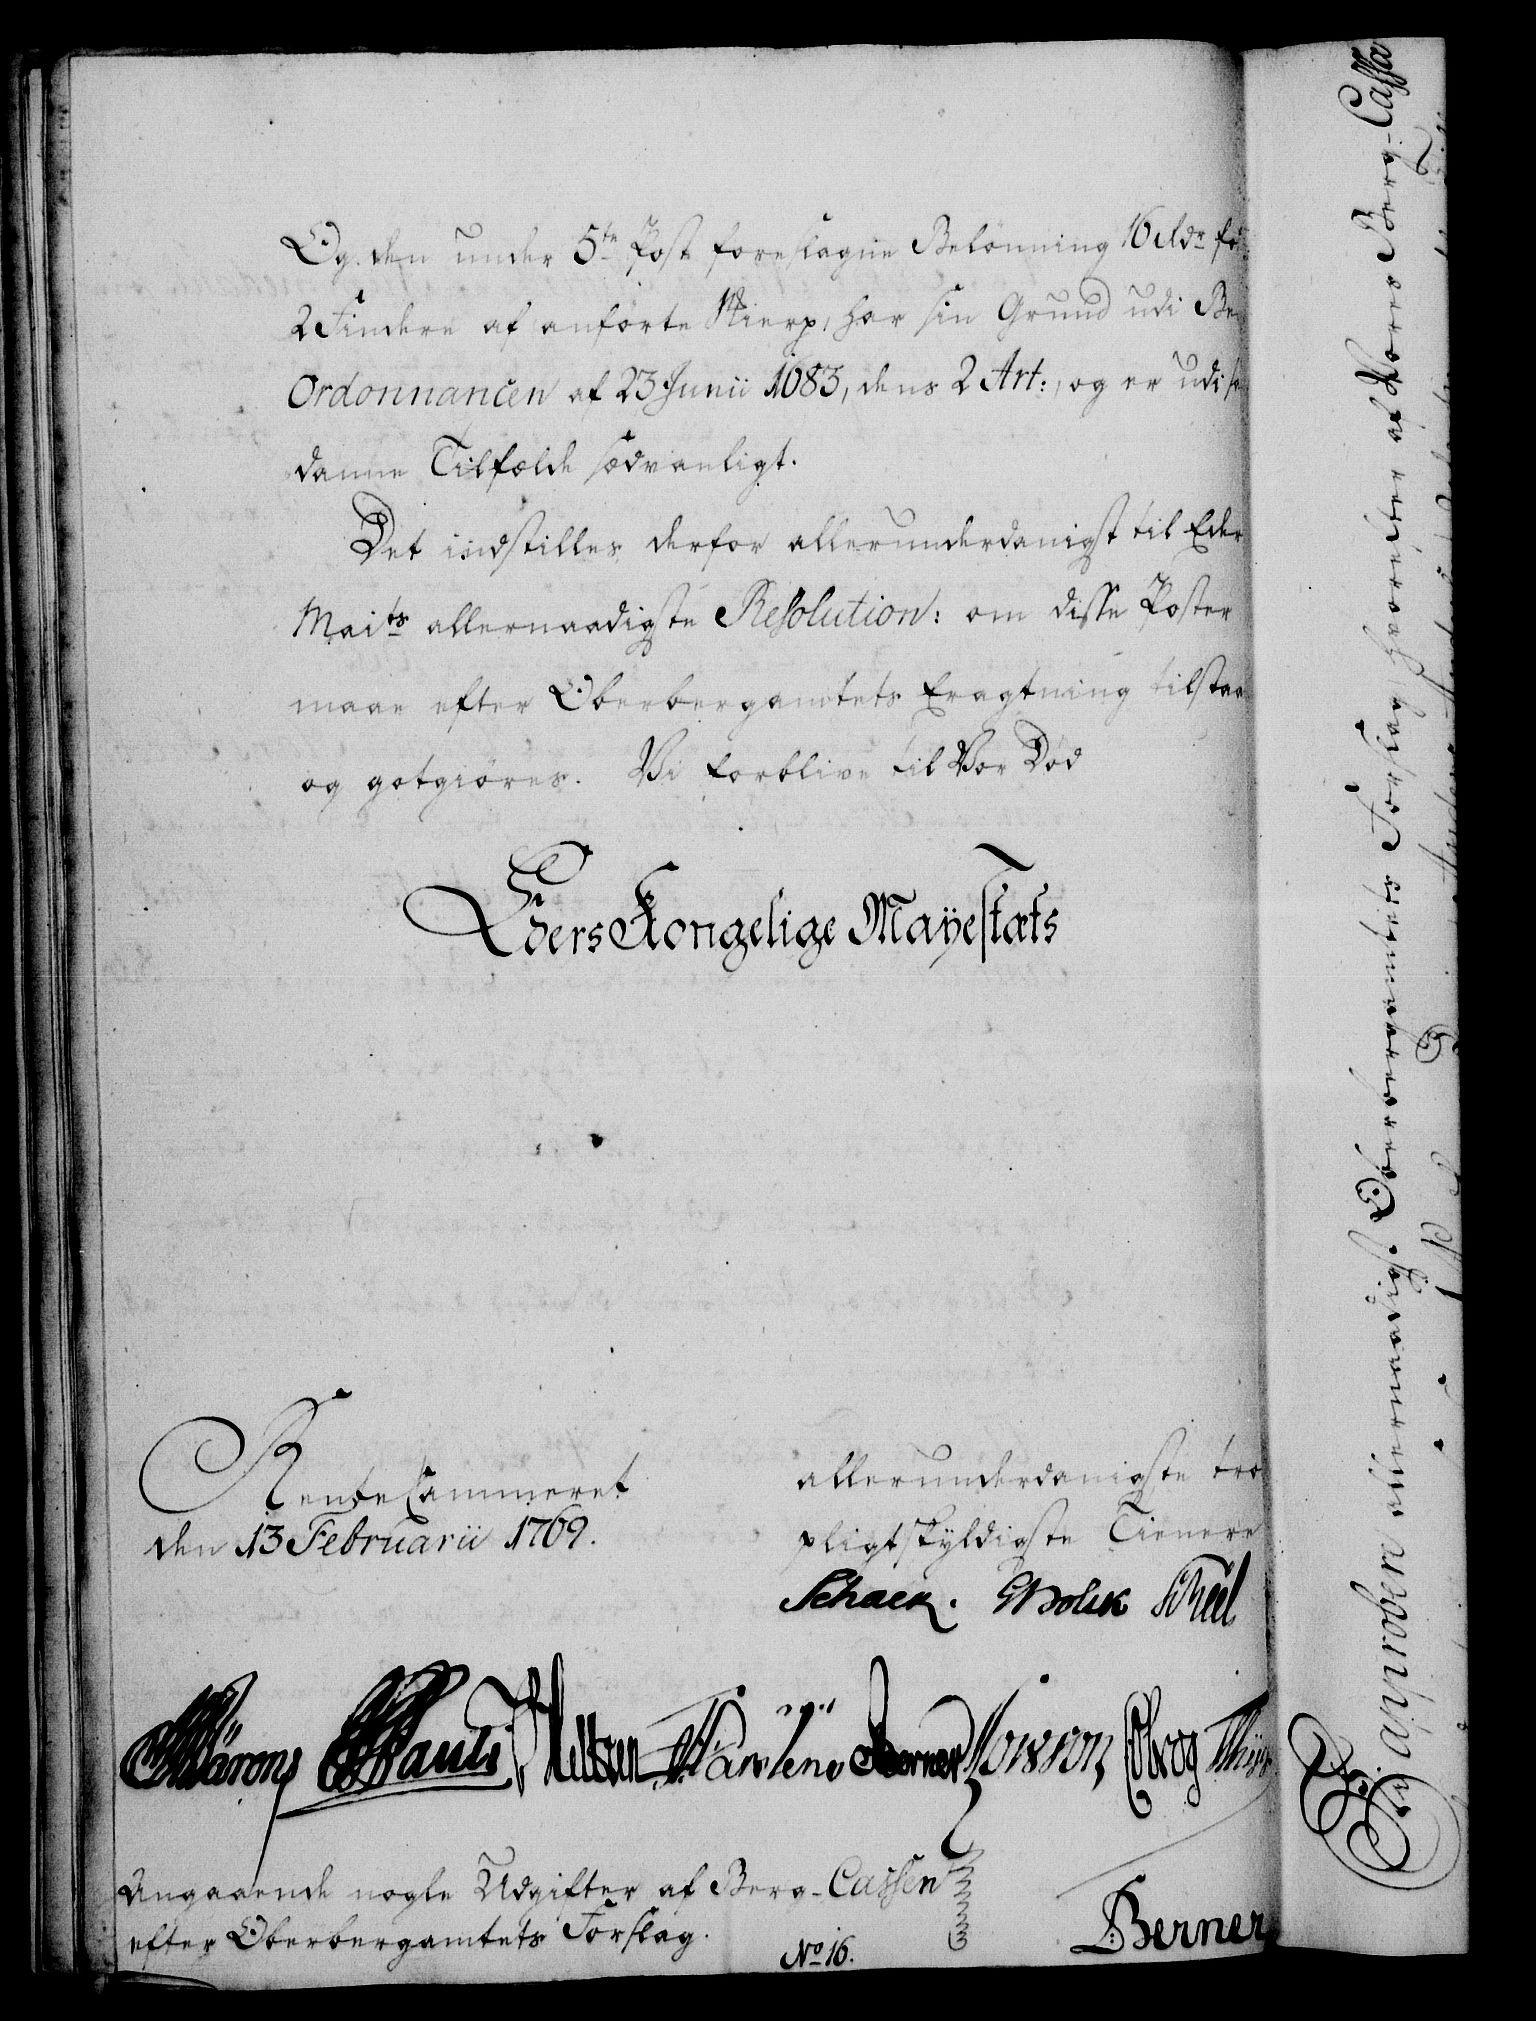 Og den under 5te Post foreslagne Belönning 16 Rdr for
2 Findere af anförte Skierp, har sin Grund udi Be
Ordonnancen af 23 Junii 1683, dens 2 Art:, og er udi
danne Tilfælde sædvanligt.
Det indstilles derfor allerunderdanigst til Eders
Maits allernaadigste Resolution: om disse Poster
maae efter Oberbergamtets Eragtning tilstaa
og gotgiöres. Vi forblive til Vor Död
Eders Kongelige Mayestæts
RenteCammeret
den 13 Februarii 1769.
allerunderdanigste tro
pligtskyldigste Tienere
Schack. Scheel
Pauli Berner Coberg
Angaaende nogle Udgifter af Berg-Cassen
efter Oberbergamtets Forslag.
No 16.
Berner
Vi approbere allernaadigst Oberbergamtets Forslag, hvorefter af Vores Berg-Cassa